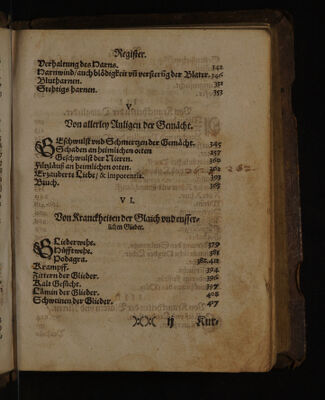 Register.
Verhaltung des Harns. 342
Harnwind/auch blödigkeit vñ verserüg der Blater. 346
Blutharnen. 351
Stehtigs harnen. 353
V.
Von allerley Anligen der Gemächt.
GEschwulst vnd Schmertzen der Gemächt. 355
Schaden an heimlichen orten 257
Geschwulst der Nieren.
Filtzläuß an heimlichen orten.
Erzünderte Liebe/ & impotentia. 393
Bruch. 365
VI.
Von Kranckheiten der Gleich vnd eusser-
lichen Glieder.
GLiederwehe. 379
Hüfftwehe. 381
Podagra. 382.412
Krampff. 394
Zittern der Glieder. 396
Kalt Gesücht. 397
Lämin der Glieder. 402
Schweinen der Glieder. 417
ij Kur-